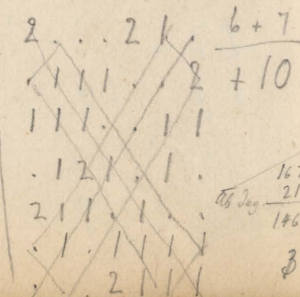 2 . . . 2 1 .
. 1 1 1 . . 2
1 1 1 . . 1 1
. 1 2 1 . 1 .
2 1 1 . 1 . .
. 1 . 1 1 1 1
. . 2 1 1 1
6 + 7
+ 10
167
21
146
3